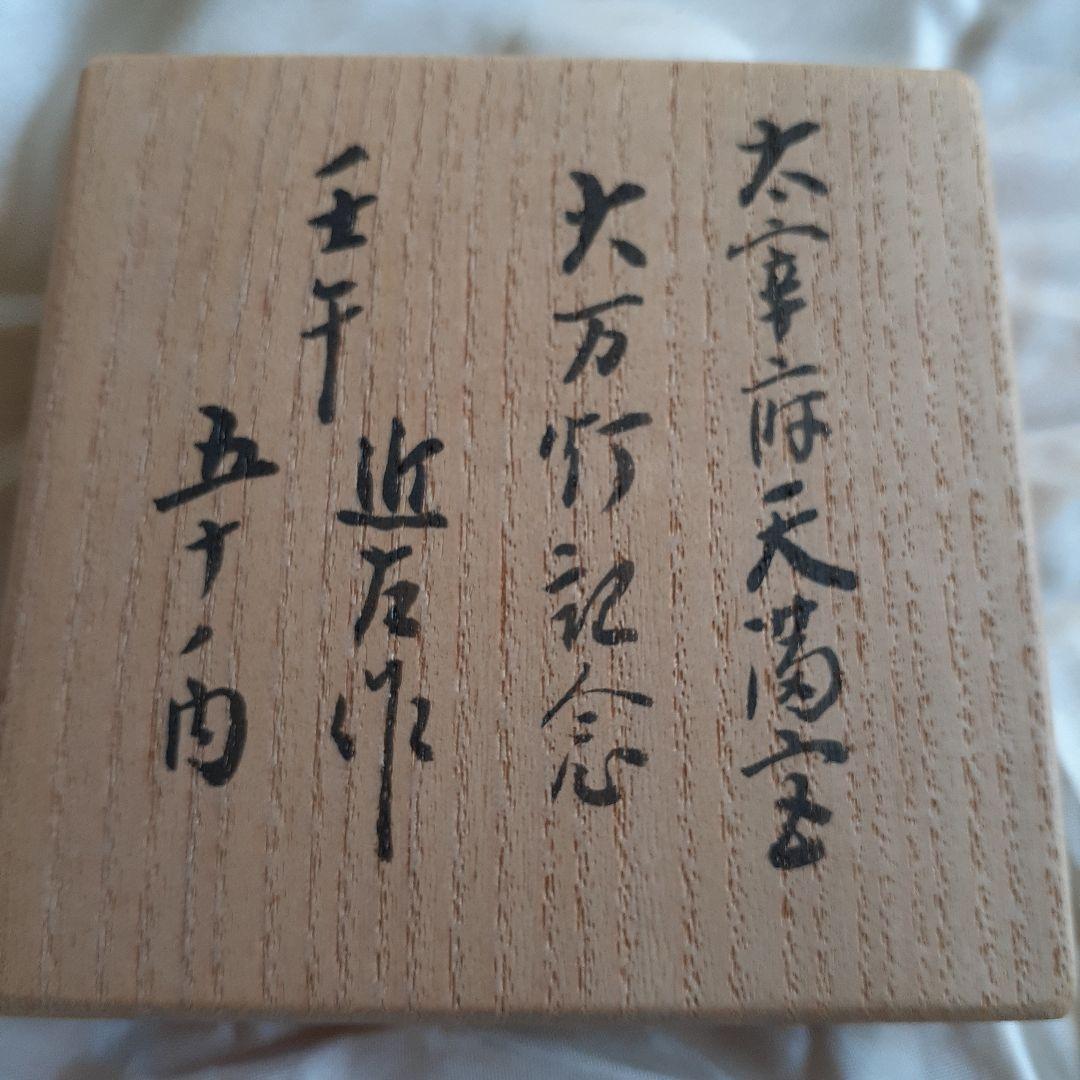 太宰府天満宮
大万灯記念
壬午
近左作
五十ノ内